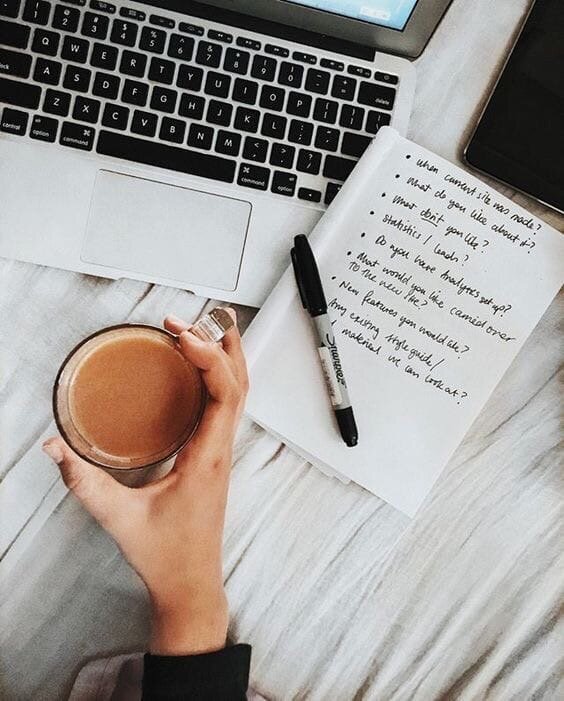 ! 1 @ 2 # 3 $ 4 % 5 ^ 6 & 7 * 8 ( 9 ) 0 delete
Q W E R T Y U I O P
lock A S D F G H J K L
Z X C V B N M
control option command command option
• When current site was made?
• What do you like about it?
• What don't you like?
• Statistics / Leads?
• Do you have Analytics set up?
• What would you like carried over
to the new site?
• New features you would like?
Any existing style guide /
material we can look at?
Sharpie